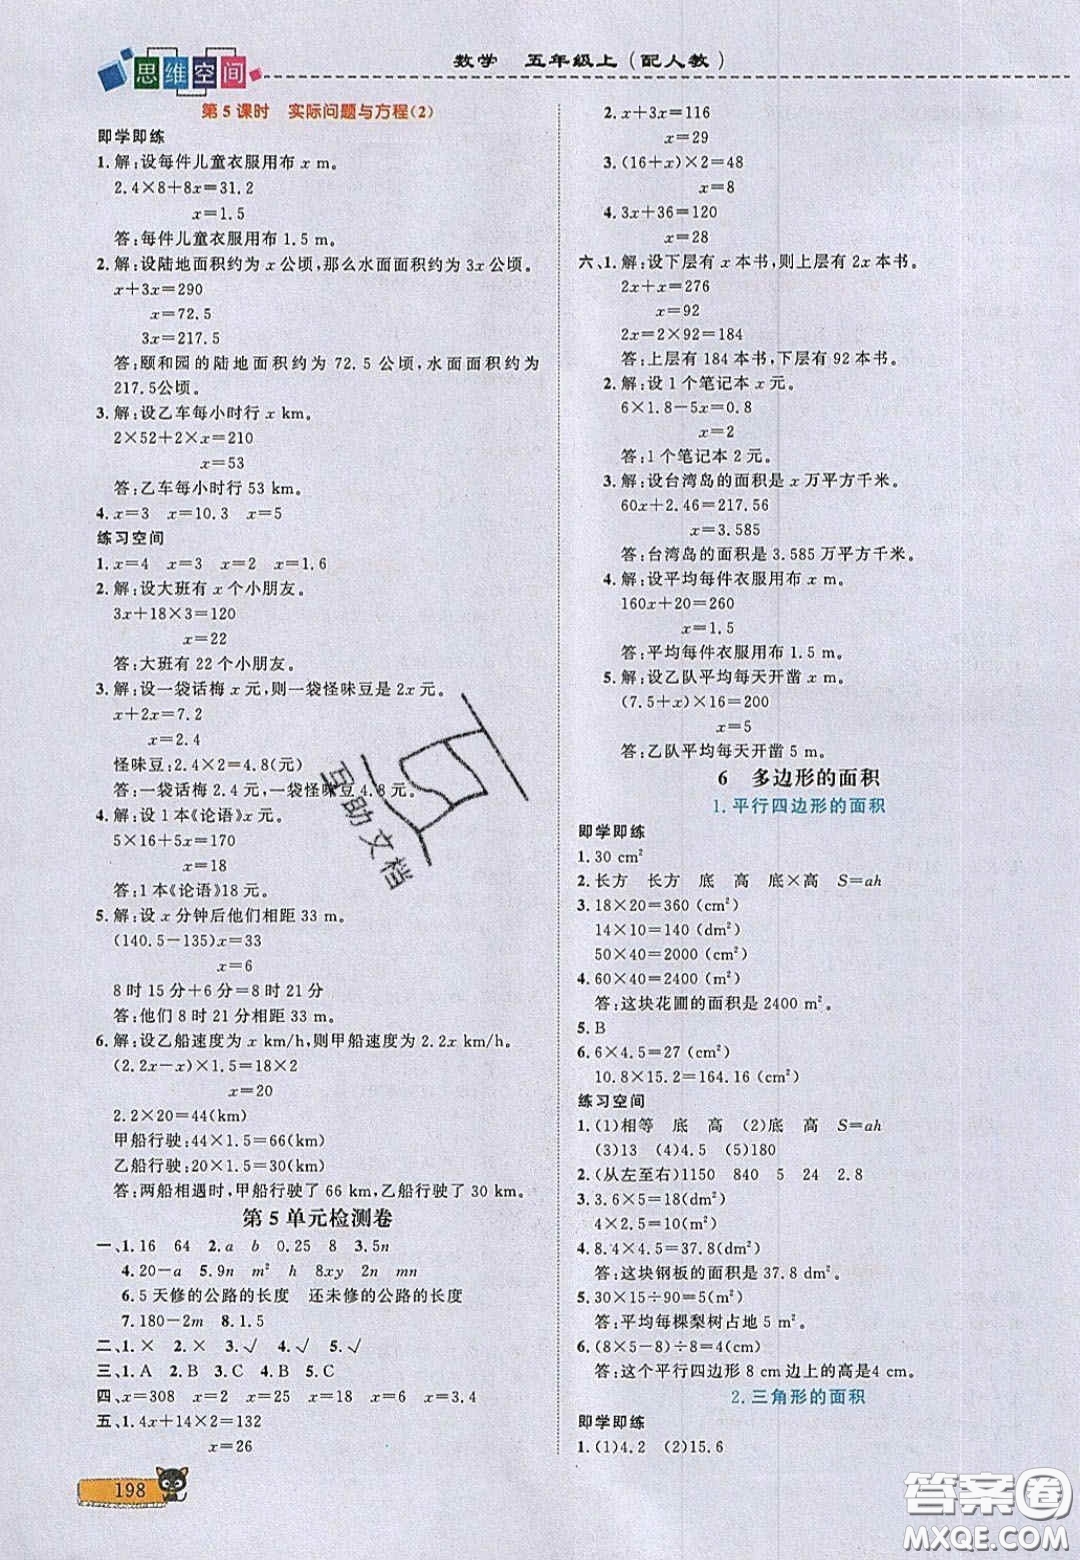 思维空间
数学 五年级上(配人教)
第5课时 实际问题与方程(2)
即学即练
1.解:设每件儿童衣服用布x m。
2.4×8+8x=31.2
x=1.5
答:每件儿童衣服用布1.5 m。
2.解:设陆地面积约为x公顷,那么水面面积约为3x公顷。
x+3x=290
x=72.5
3x=217.5
答:颐和园的陆地面积约为72.5公顷,水面面积约为
217.5公顷。
3.解:设乙车每小时行x km。
2×52+2×x=210
x=53
答:乙车每小时行53 km。
4.x=3 x=10.3 x=5
练习空间
1.x=4 x=3 x=2 x=1.6
2.解:设大班有x个小朋友。
3x+18×3=120
x=22
答:大班有22个小朋友。
3.解:设一袋话梅x元,则一袋怪味豆是2x元。
x+2x=7.2
x=2.4
怪味豆:2.4×2=4.8(元)
答:一袋话梅2.4元,一袋怪味豆4.8元。
4.解:设1本《论语》x元。
5×16+5x=170
x=18
答:1本《论语》18元。
5.解:设x分钟后他们相距33 m。
(140.5-135)x=33
x=6
8时15分+6分=8时21分
答:他们8时21分相距33 m。
6.解:设乙船速度为x km/h,则甲船速度为2.2x km/h。
(2.2x-x)×1.5=18×2
x=20
2.2×20=44(km)
甲船行驶:44×1.5=66(km)
乙船行驶:20×1.5=30(km)
答:两船相遇时,甲船行驶了66 km,乙船行驶了30 km。
第5单元检测卷
一、1.16 64 2.a b 0.25 8 3.5n
4.20-a 5.9n m² h 8xy 2n mn
6.5天修的公路的长度 还未修的公路的长度
7.180-2m 8.1.5
二、1.× 2.× 3.√ 4.√ 5.√
三、1.A 2.B 3.C 4.B 5.C
四、x=308 x=2 x=25 x=6 x=3.4
五、1.4x+14×2=132
x=26
198
2.x+3x=116
x=29
3.(16+x)×2=48
x=8
4.3x+36=120
x=28
六、1.解:设下层有x本书,则上层有2x本书。
2x+x=276
x=92
2x=2×92=184
答:上层有184本书,下层有92本书。
2.解:设1个笔记本x元。
6×1.8-5x=0.8
x=2
答:1个笔记本2元。
3.解:设台湾岛的面积是x万平方千米。
60x+2.46=217.56
x=3.585
答:台湾岛的面积是3.585万平方千米。
4.解:设平均每件衣服用布x m。
160x+20=260
x=1.5
答:平均每件衣服用布1.5 m。
5.解:设乙队平均每天开凿x m。
(7.5+x)×16=200
x=5
答:乙队平均每天开凿5 m。
6 多边形的面积
1.平行四边形的面积
即学即练
1.30 cm²
2.长方 长方 底 高 底×高 S=ah
3.18×20=360(cm²)
14×10=140(dm²)
50×40=2000(cm²)
4.60×40=2400(m²)
答:这块花圃的面积是2400 m²。
5.B
6.6×4.5=27(cm²)
10.8×15.2=164.16(cm²)
练习空间
1.(1)相等 底 高 (2)底 高 S=ah
(3)13 (4)4.5 (5)180
2.(从左至右)1150 840 5 24 2.8
3.3.6×5=18(cm²)
4×2.5=10(cm²)
4.8.4×4.5=37.8(dm²)
答:这块钢板的面积是37.8 dm²。
5.30×15÷90=5(m²)
答:平均每棵梨树占地5 m²。
6.(8×5-8)÷8=4(cm)
答:这个平行四边形8 cm边上的高是4 cm。
2.三角形的面积
即学即练
1.(1)4.2 (2)15.6
互助文档
答案圈
MXQE.COM